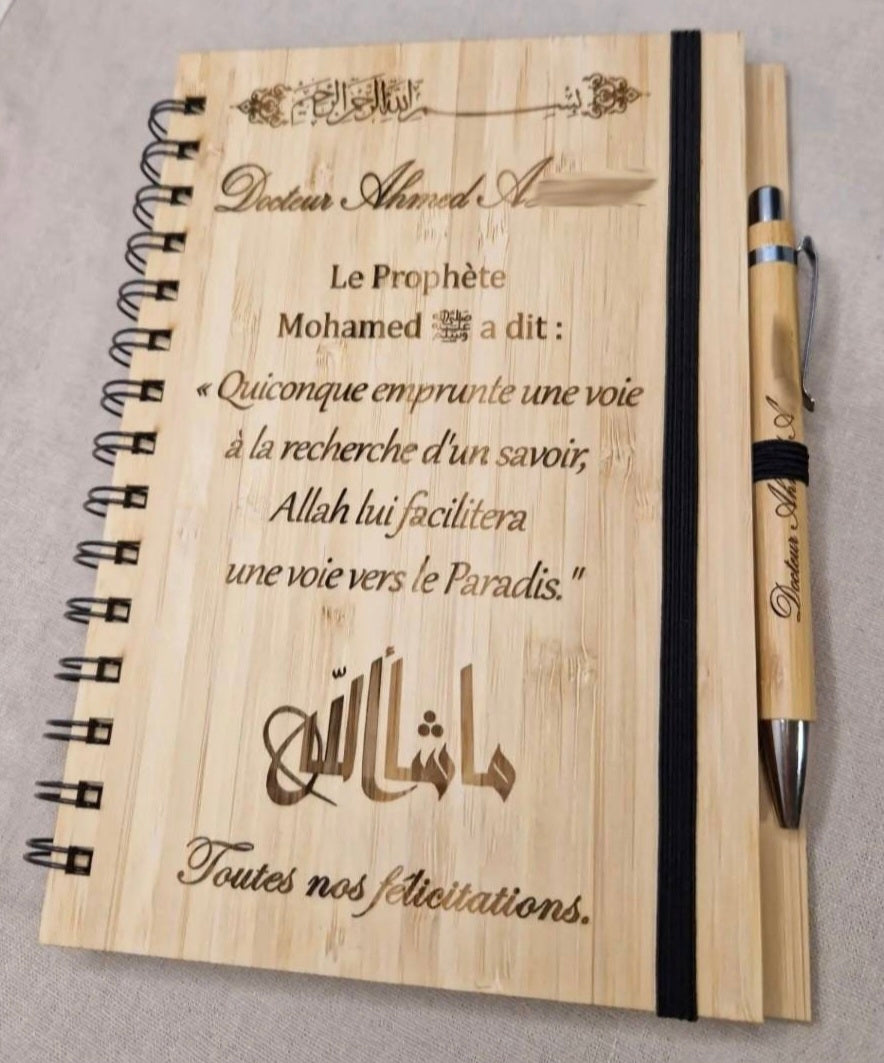 بسم الله الرحمن الرحيم
Docteur Ahmed A
Le Prophète
Mohamed ﷺ a dit :
« Quiconque emprunte une voie
à la recherche d'un savoir,
Allah lui facilitera
une voie vers le Paradis."
ما شاء الله
Toutes nos félicitations.
Docteur Ah A